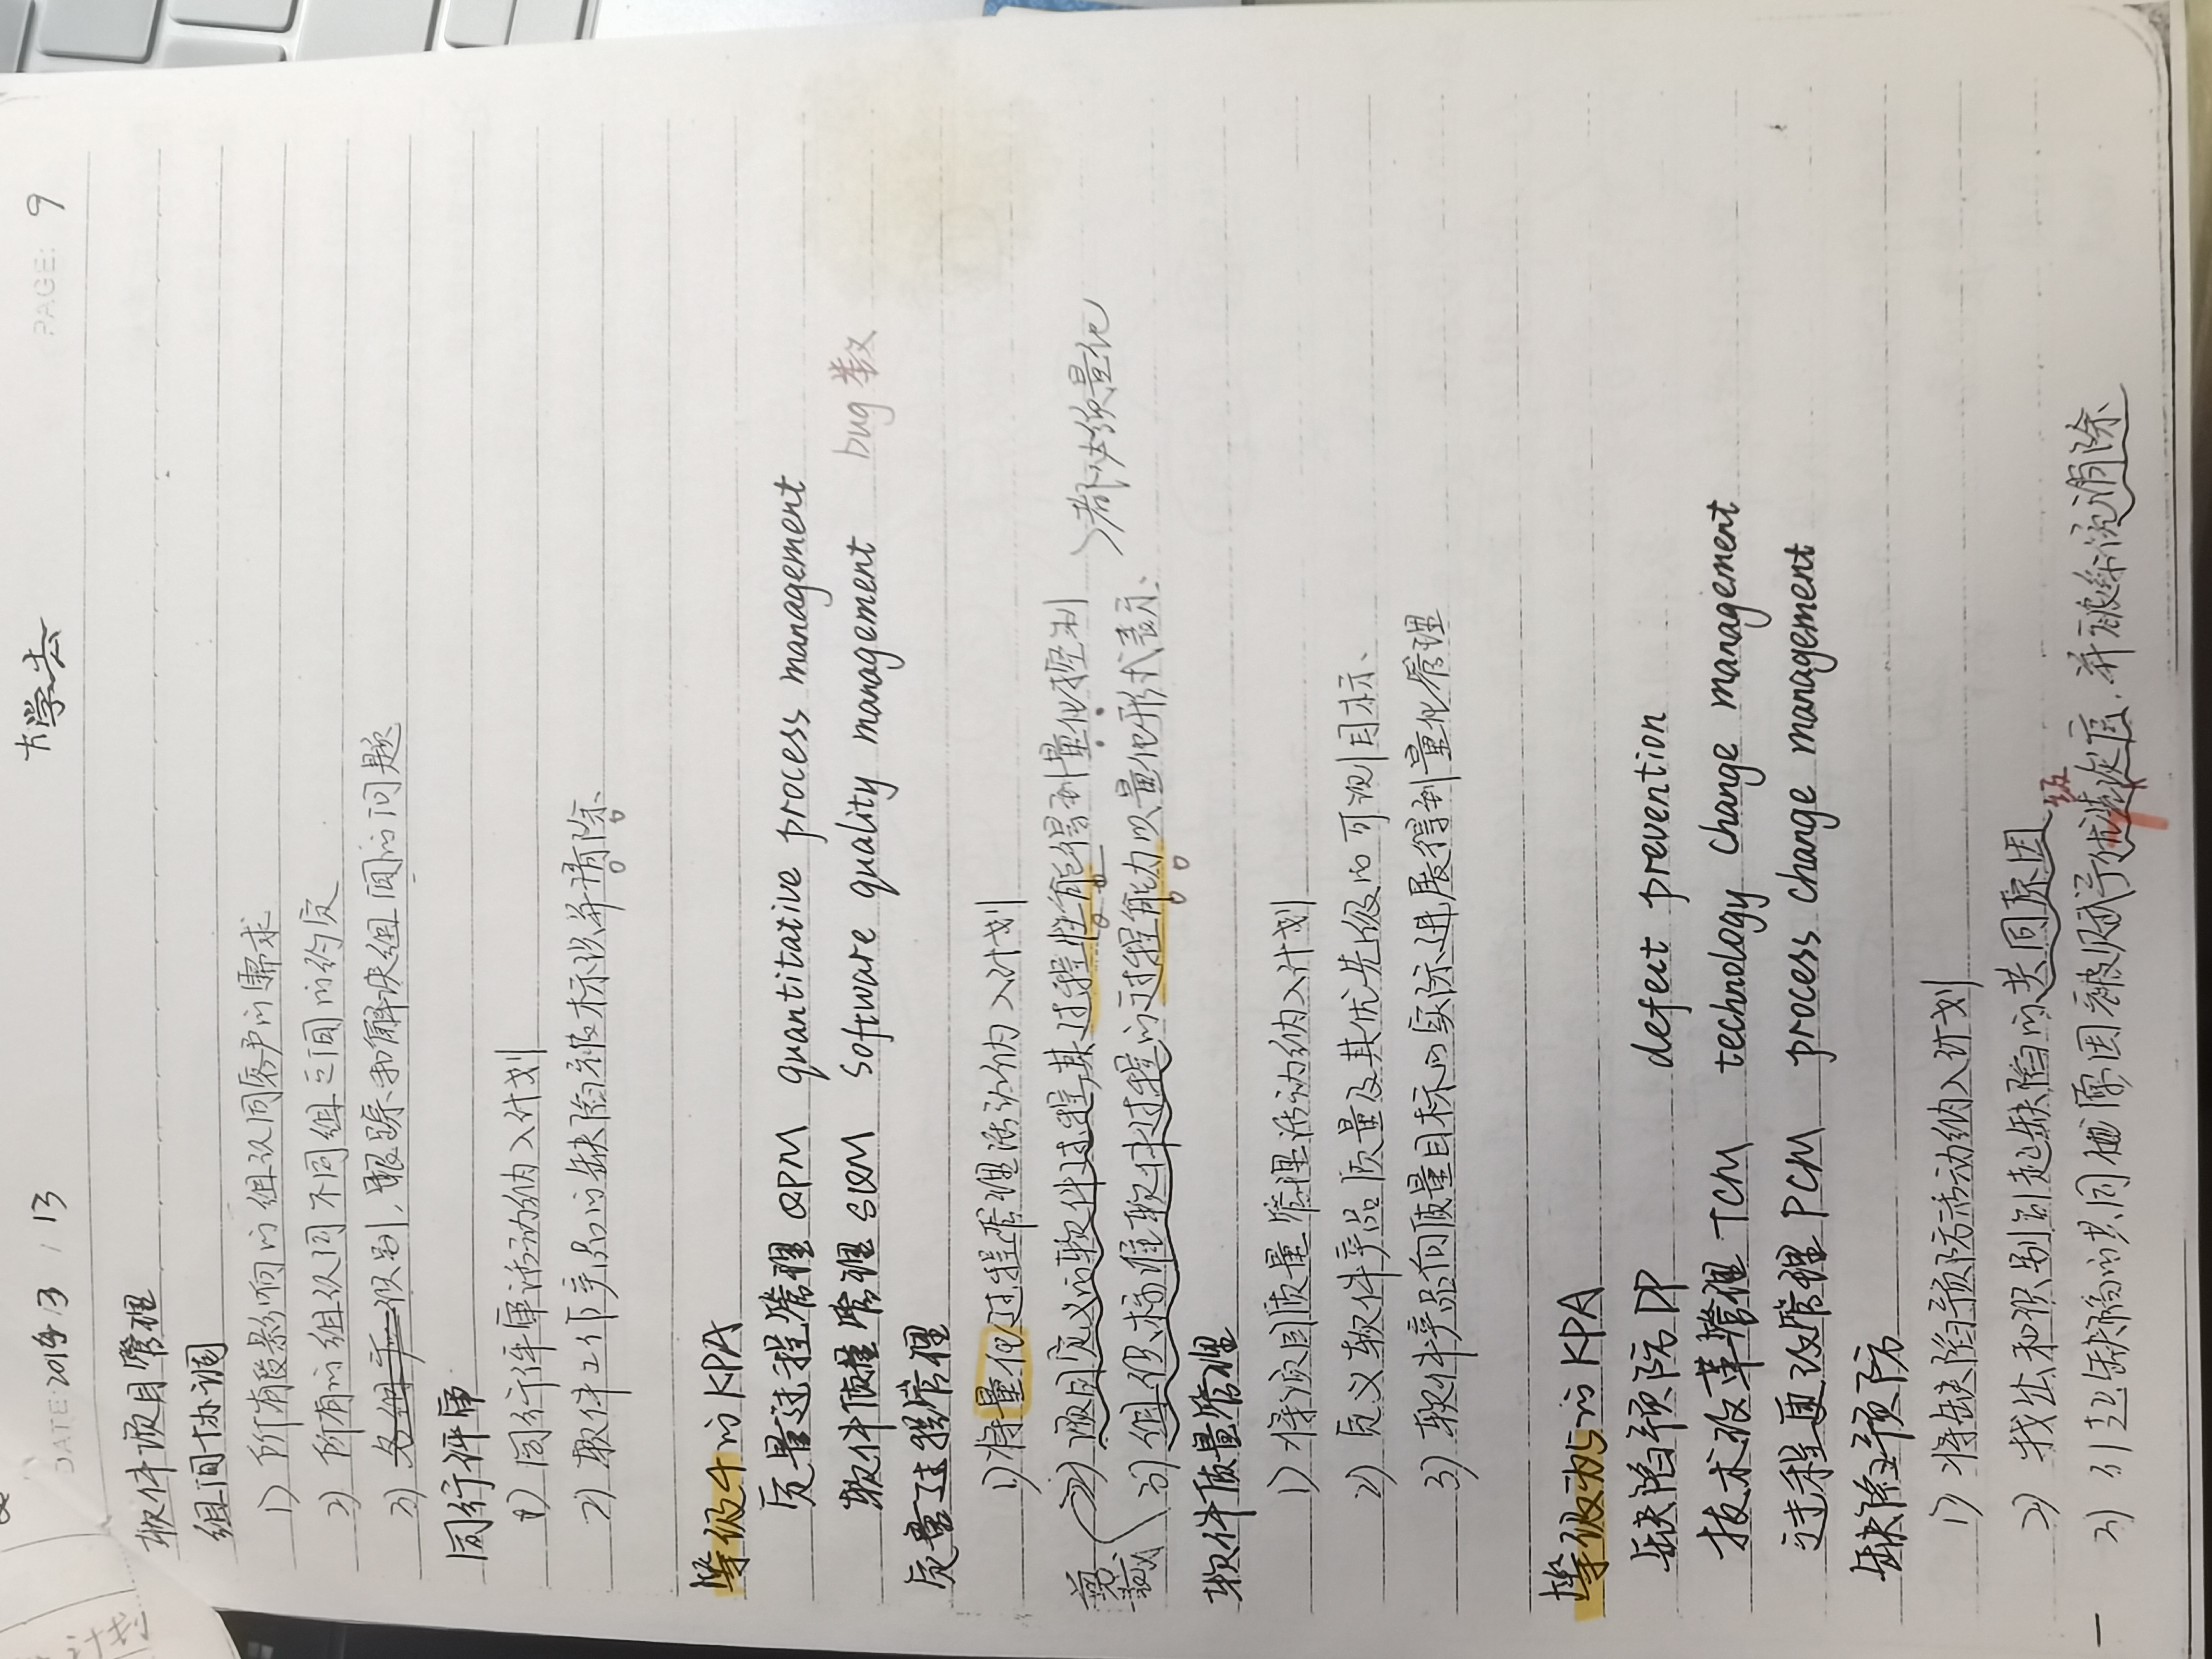 大学去
DATE: 2019 / 3 / 13 PAGE: 9
软件项目管理
组间协调
1) 所有受影响的组认同客户的需求
2) 所有的组认同不同组之间的约定
3) 识别,跟踪和解决组间的问题
同行评审
1) 同行评审活动纳入计划
2) 软件工作产品的缺陷被标识并清除
等级4的KPA
定量过程管理 QPM quantitative process management
软件质量管理 SQM software quality management bug数
定量过程管理
1) 将量化过程管理活动纳入计划
2) 项目定义的软件过程其过程性能得到量化控制
>都必须量化
剪裁
3) 组织标准软件过程的过程能力以量化形式表示.
软件质量管理
1) 将项目质量管理活动纳入计划
2) 定义软件产品质量及其优先级的可测目标.
3) 软件产品向质量目标的实际进展得到量化管理
等级5的KPA
缺陷预防 DP defect prevention
技术改革管理 TCM technology change management
过程更改管理 PCM process change management
缺陷预防
1) 将缺陷预防活动纳入计划
2) 找出和识别引起缺陷的共同原因
级
3) 引起缺陷的共同原因被赋予优先,并被系统消除